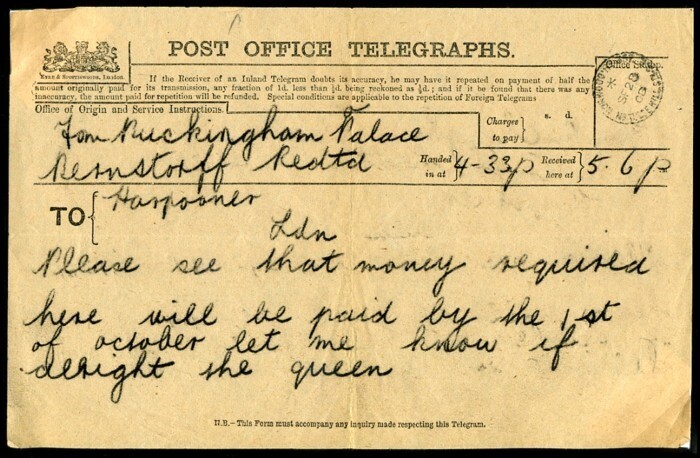 POST OFFICE TELEGRAPHS.
If the Receiver of an Inland Telegram doubts its accuracy, he may have it repeated on payment of half the
amount originally paid for its transmission, any fraction of 1d. less than ½d. being reckoned as ½d.; and if it be found that there was any
inaccuracy, the amount paid for repetition will be refunded. Special conditions are applicable to the repetition of Foreign Telegrams
Office of Origin and Service Instructions.
Office Stamp.
Buckingham Palace
Bernstorff Redtd
Charges to pay
s. d.
Handed in at 4-33p Received here at 5.6p
TO Harpooner
Ldn
Please see that money required
here will be paid by the 1st
of october let me know if
alright the queen
N.B.—This Form must accompany any inquiry made respecting this Telegram.